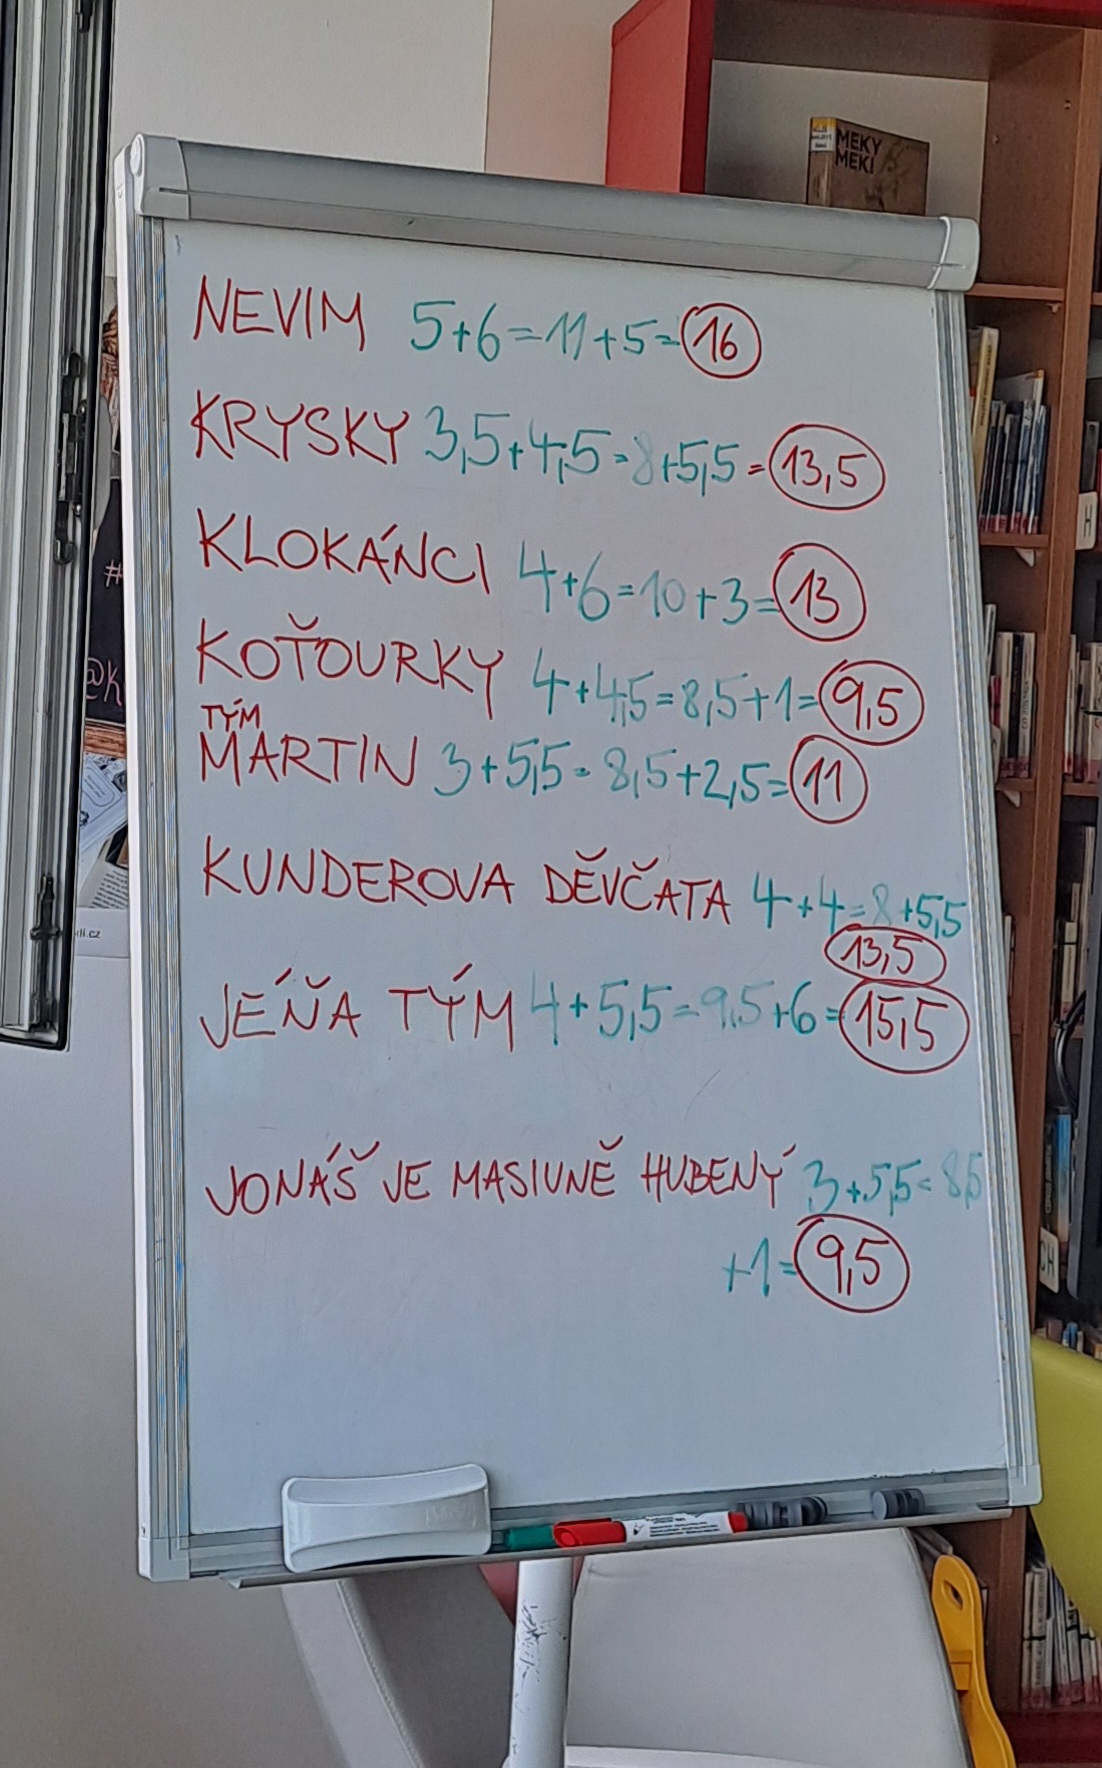 MEKY
MEKI
NEVIM 5+6=11+5=16
KRYSKY 3,5+4,5=8+5,5=13,5
KLOKÁNCI 4+6=10+3=13
KOŤOURKY 4+4,5=8,5+1=9,5
TÝM
MARTIN 3+5,5=8,5+2,5=11
KUNDEROVA DĚVČATA 4+4=8+5,5
13,5
JÉŇA TÝM 4+5,5=9,5+6=15,5
JONÁŠ JE MASIVNĚ HUBENÝ 3+5,5=8,5
+1=9,5
#
@K
H
CH